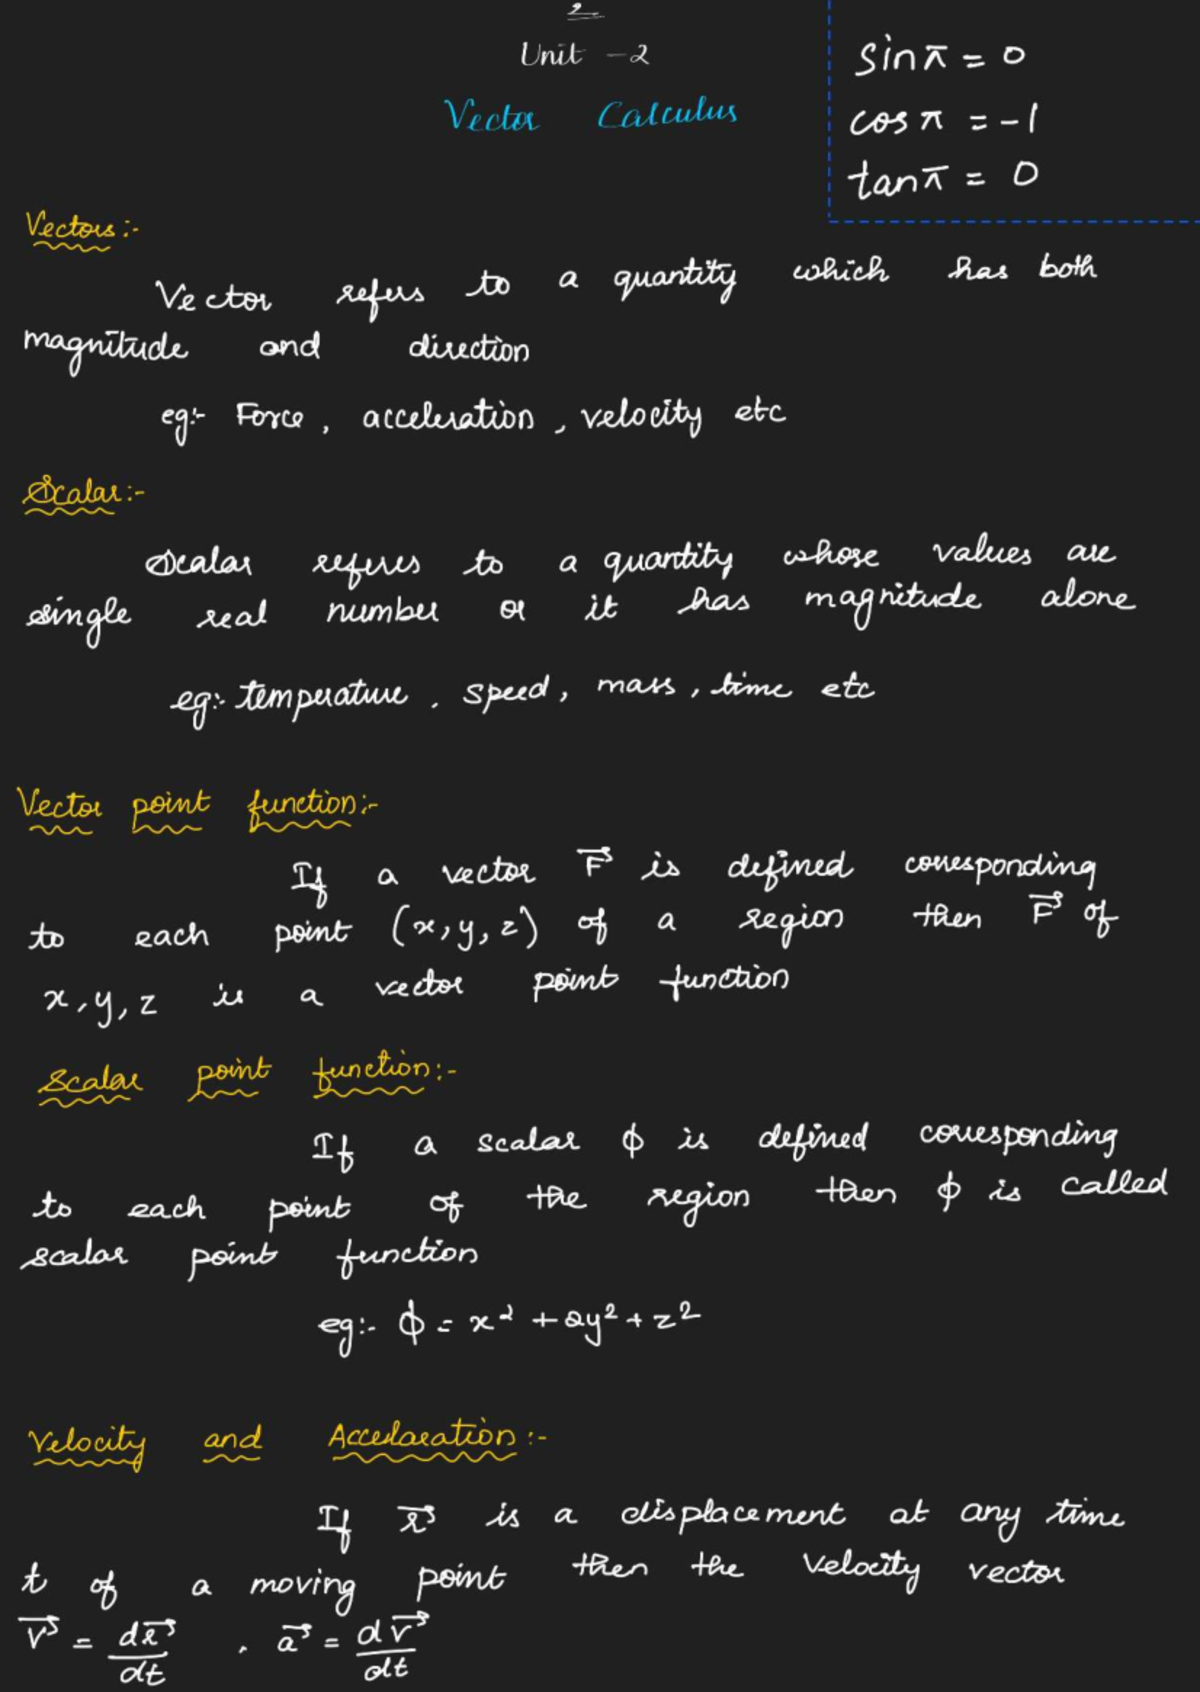 2
Unit - 2
Vector Calculus
sin π = 0
cos π = -1
tan π = 0
Vectors :-
Vector refers to a quantity which has both
magnitude and direction
eg:- Force, acceleration, velocity etc
Scalar :-
Scalar referes to a quantity whose values are
single real number or it has magnitude alone
eg:- temperature, speed, mass, time etc
Vector point function :-
If a vector F⃗ is defined corresponding
to each point (x, y, z) of a region then F⃗ of
x, y, z is a vector point function
Scalar point function :-
If a scalar ϕ is defined corresponding
to each point of the region then ϕ is called
scalar point function
eg:- ϕ = x² + 2y² + z²
Velocity and Accelaration :-
If r⃗ is a displacement at any time
t of a moving point then the velocity vector
v⃗ = dr⃗/dt , a⃗ = dv⃗/dt